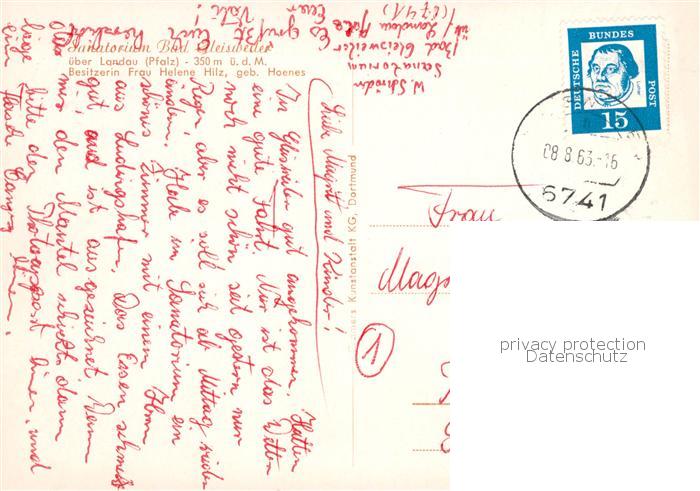 Sanatorium Bad Gleisweiler
über Landau (Pfalz) - 350 m ü. d. M.
Besitzerin Frau Helene Hilz, geb. Hoenes
W. Schrodn
Sanatorium
Bad Gleisweiler
üb/ Landau Pfalz
(6741)
Liebe Magst und Kinder!
In Gleisweiler gut angekommen. Hatten
eine gute Fahrt. Nur ist das Wetter
noch nicht schön seit gestern nur
Regen, aber es soll sich ab Mittag wieder
ändern. Habe im Sanatorium ein
schönes Zimmer mit einem Herrn
aus Ludwigshafen. Das Essen schmeckt
gut, und ist ausgezeichnet. Wenn
mir den Mantel schickt dann
bitte den Photoapparat und
eine Flasche
Es grüßt Euch herzlichst
Euer Vati!
Kunstanstalt KG, Dortmund
DEUTSCHE BUNDESPOST
15
08.8.63.-16
6741
Frau
Mags
1
privacy protection
Datenschutz